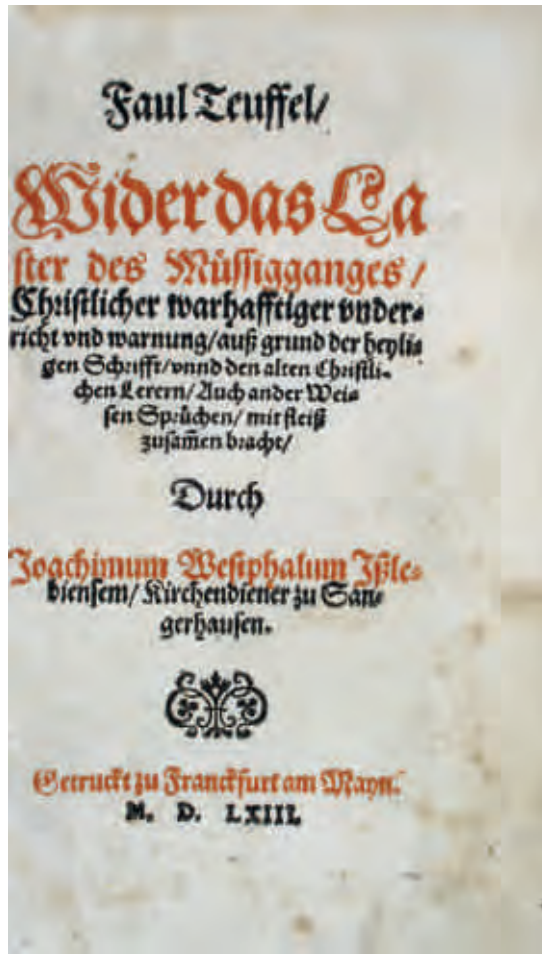 Faul Teuffel/
Wider das La
ster des Müssigganges/
Christlicher warhafftiger vnder-
richt vnd warnung/auß grund der heyli-
gen Schrifft/vnnd den alten Christli-
chen Lerern/Auch ander Wei-
sen Sprüchen/mit fleiß
zusam̃en bracht/
Durch
Joachimum Westphalum Jßle-
biensem/Kirchendiener zu San-
gerhausen.
Getruckt zu Franckfurt am Mayn.
M. D. LXIII.